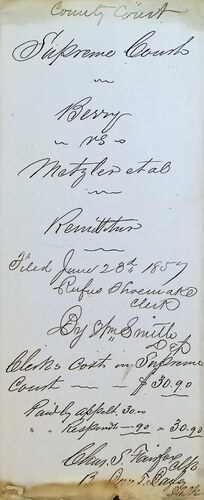 County Court
Supreme Court
Berry
vs
Metzler et al
Remittitur
Filed June 23th 1857
Rufus Shoemaker
Clerk
By Wm Smith
Dep
Clerks Costs in Supreme
Court $30.90
Paid by appellt 30.00
" " Respondt .90 = 30.90
Chas. S. Fairfax
Clk